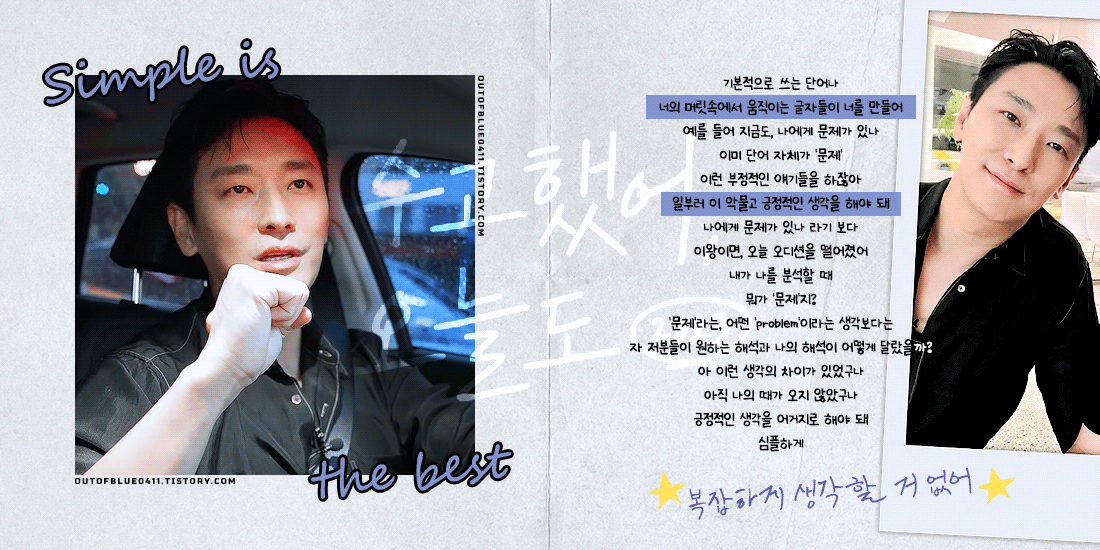 Simple is
OUTOFBLUE0411.TISTORY.COM
수고했어,
오늘도
the best
OUTOFBLUE0411.TISTORY.COM
기본적으로 쓰는 단어나
너의 머릿속에서 움직이는 글자들이 너를 만들어
예를 들어 지금도, 나에게 문제가 있나
이미 단어 자체가 '문제'
이런 부정적인 얘기들을 하잖아
일부러 이 악물고 긍정적인 생각을 해야 돼
나에게 문제가 있나 라기 보다
이왕이면, 오늘 오디션을 떨어졌어
내가 나를 분석할 때
뭐가 '문제'지?
'문제'라는, 어떤 'problem'이라는 생각보다는
자 저분들이 원하는 해석과 나의 해석이 어떻게 달랐을까?
아 이런 생각의 차이가 있었구나
아직 나의 때가 오지 않았구나
긍정적인 생각을 어거지로 해야 돼
심플하게
복잡하게 생각할 거 없어